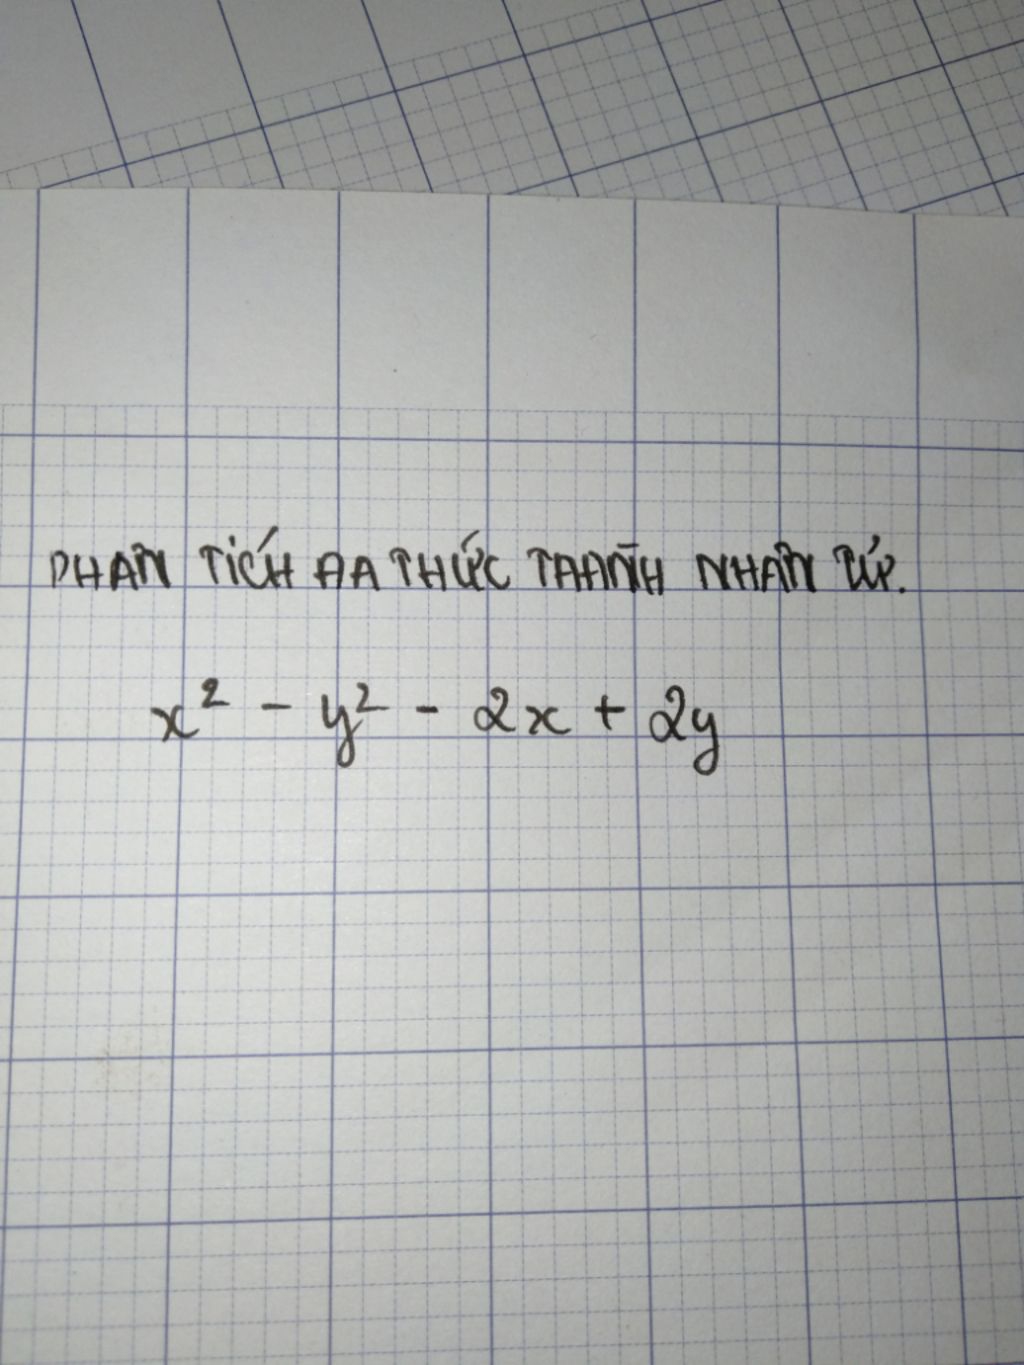 PHÂN TÍCH ĐA THỨC THÀNH NHÂN TỬ.
x² - y² - 2x + 2y